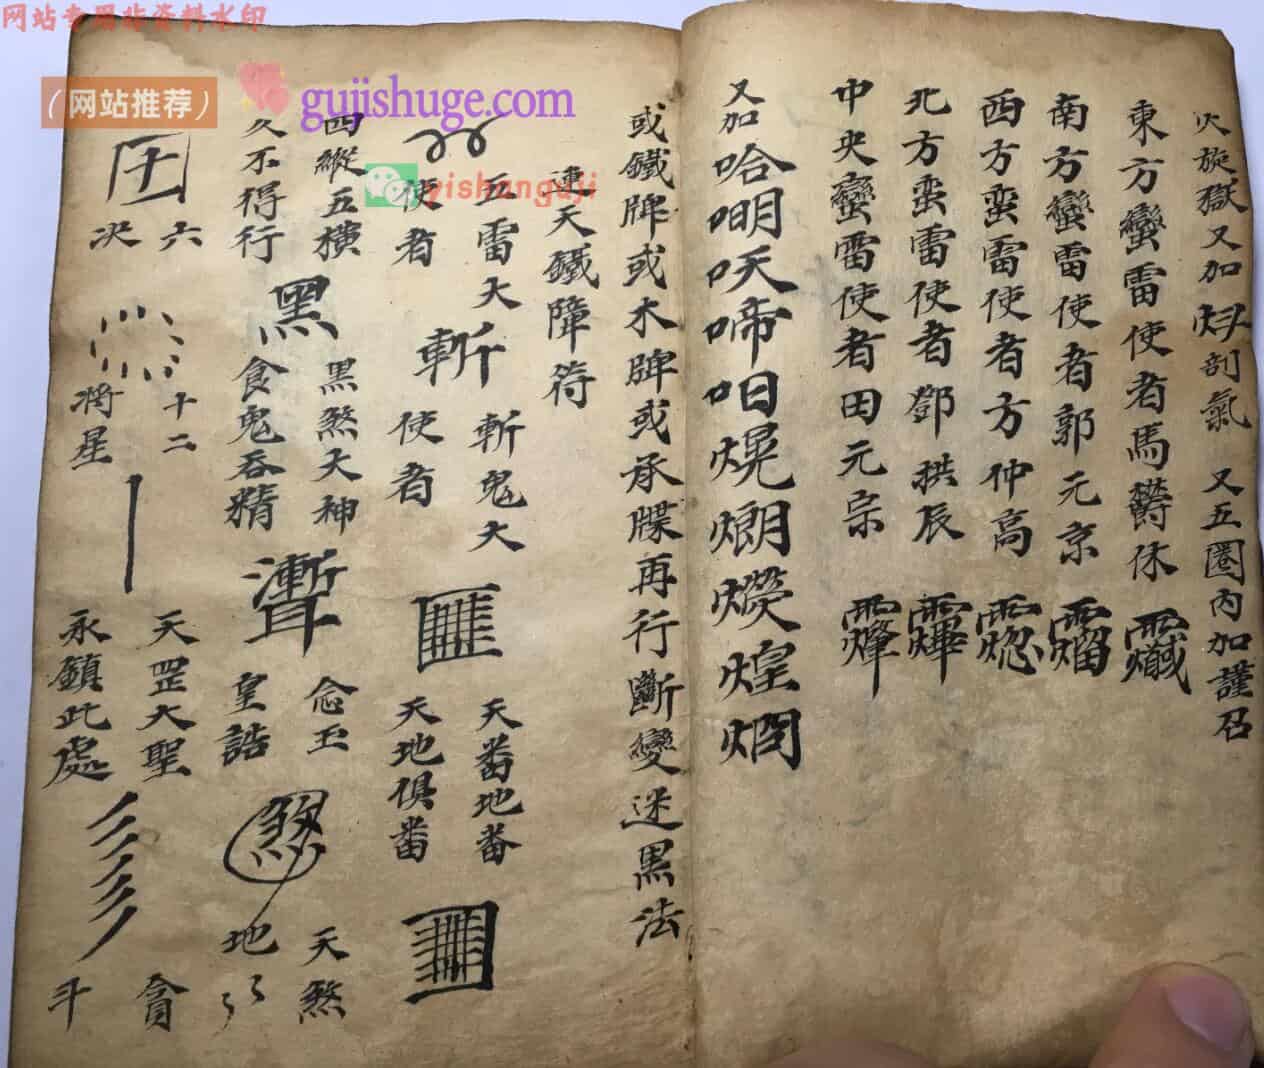 网站专用站资料水印
（网站推荐）
gujishuge.com
yishanguji
火旋獄又加 剖氣 又五圈內加謹召
東方蠻雷使者馬 休
南方蠻雷使者郭元京
西方蛮雷使者方仲高
北方蛮雷使者鄧拱辰
中央蠻雷使者田元宗
又加哈明㕭啼呾熀烺熒煌焖
或鐵牌或木牌或承牒再行斷變迷黑法
連天鐵障符
五雷大
使者
斬
斬鬼大
使者
天番地番
天地俱番
四縱五橫
久不得行
黑
黑煞大神
食鬼吞精
魙
念玉
皇誥
煞
天煞
地
六
决
十二
将星
天罡大聖
永鎮此處
貪
斗